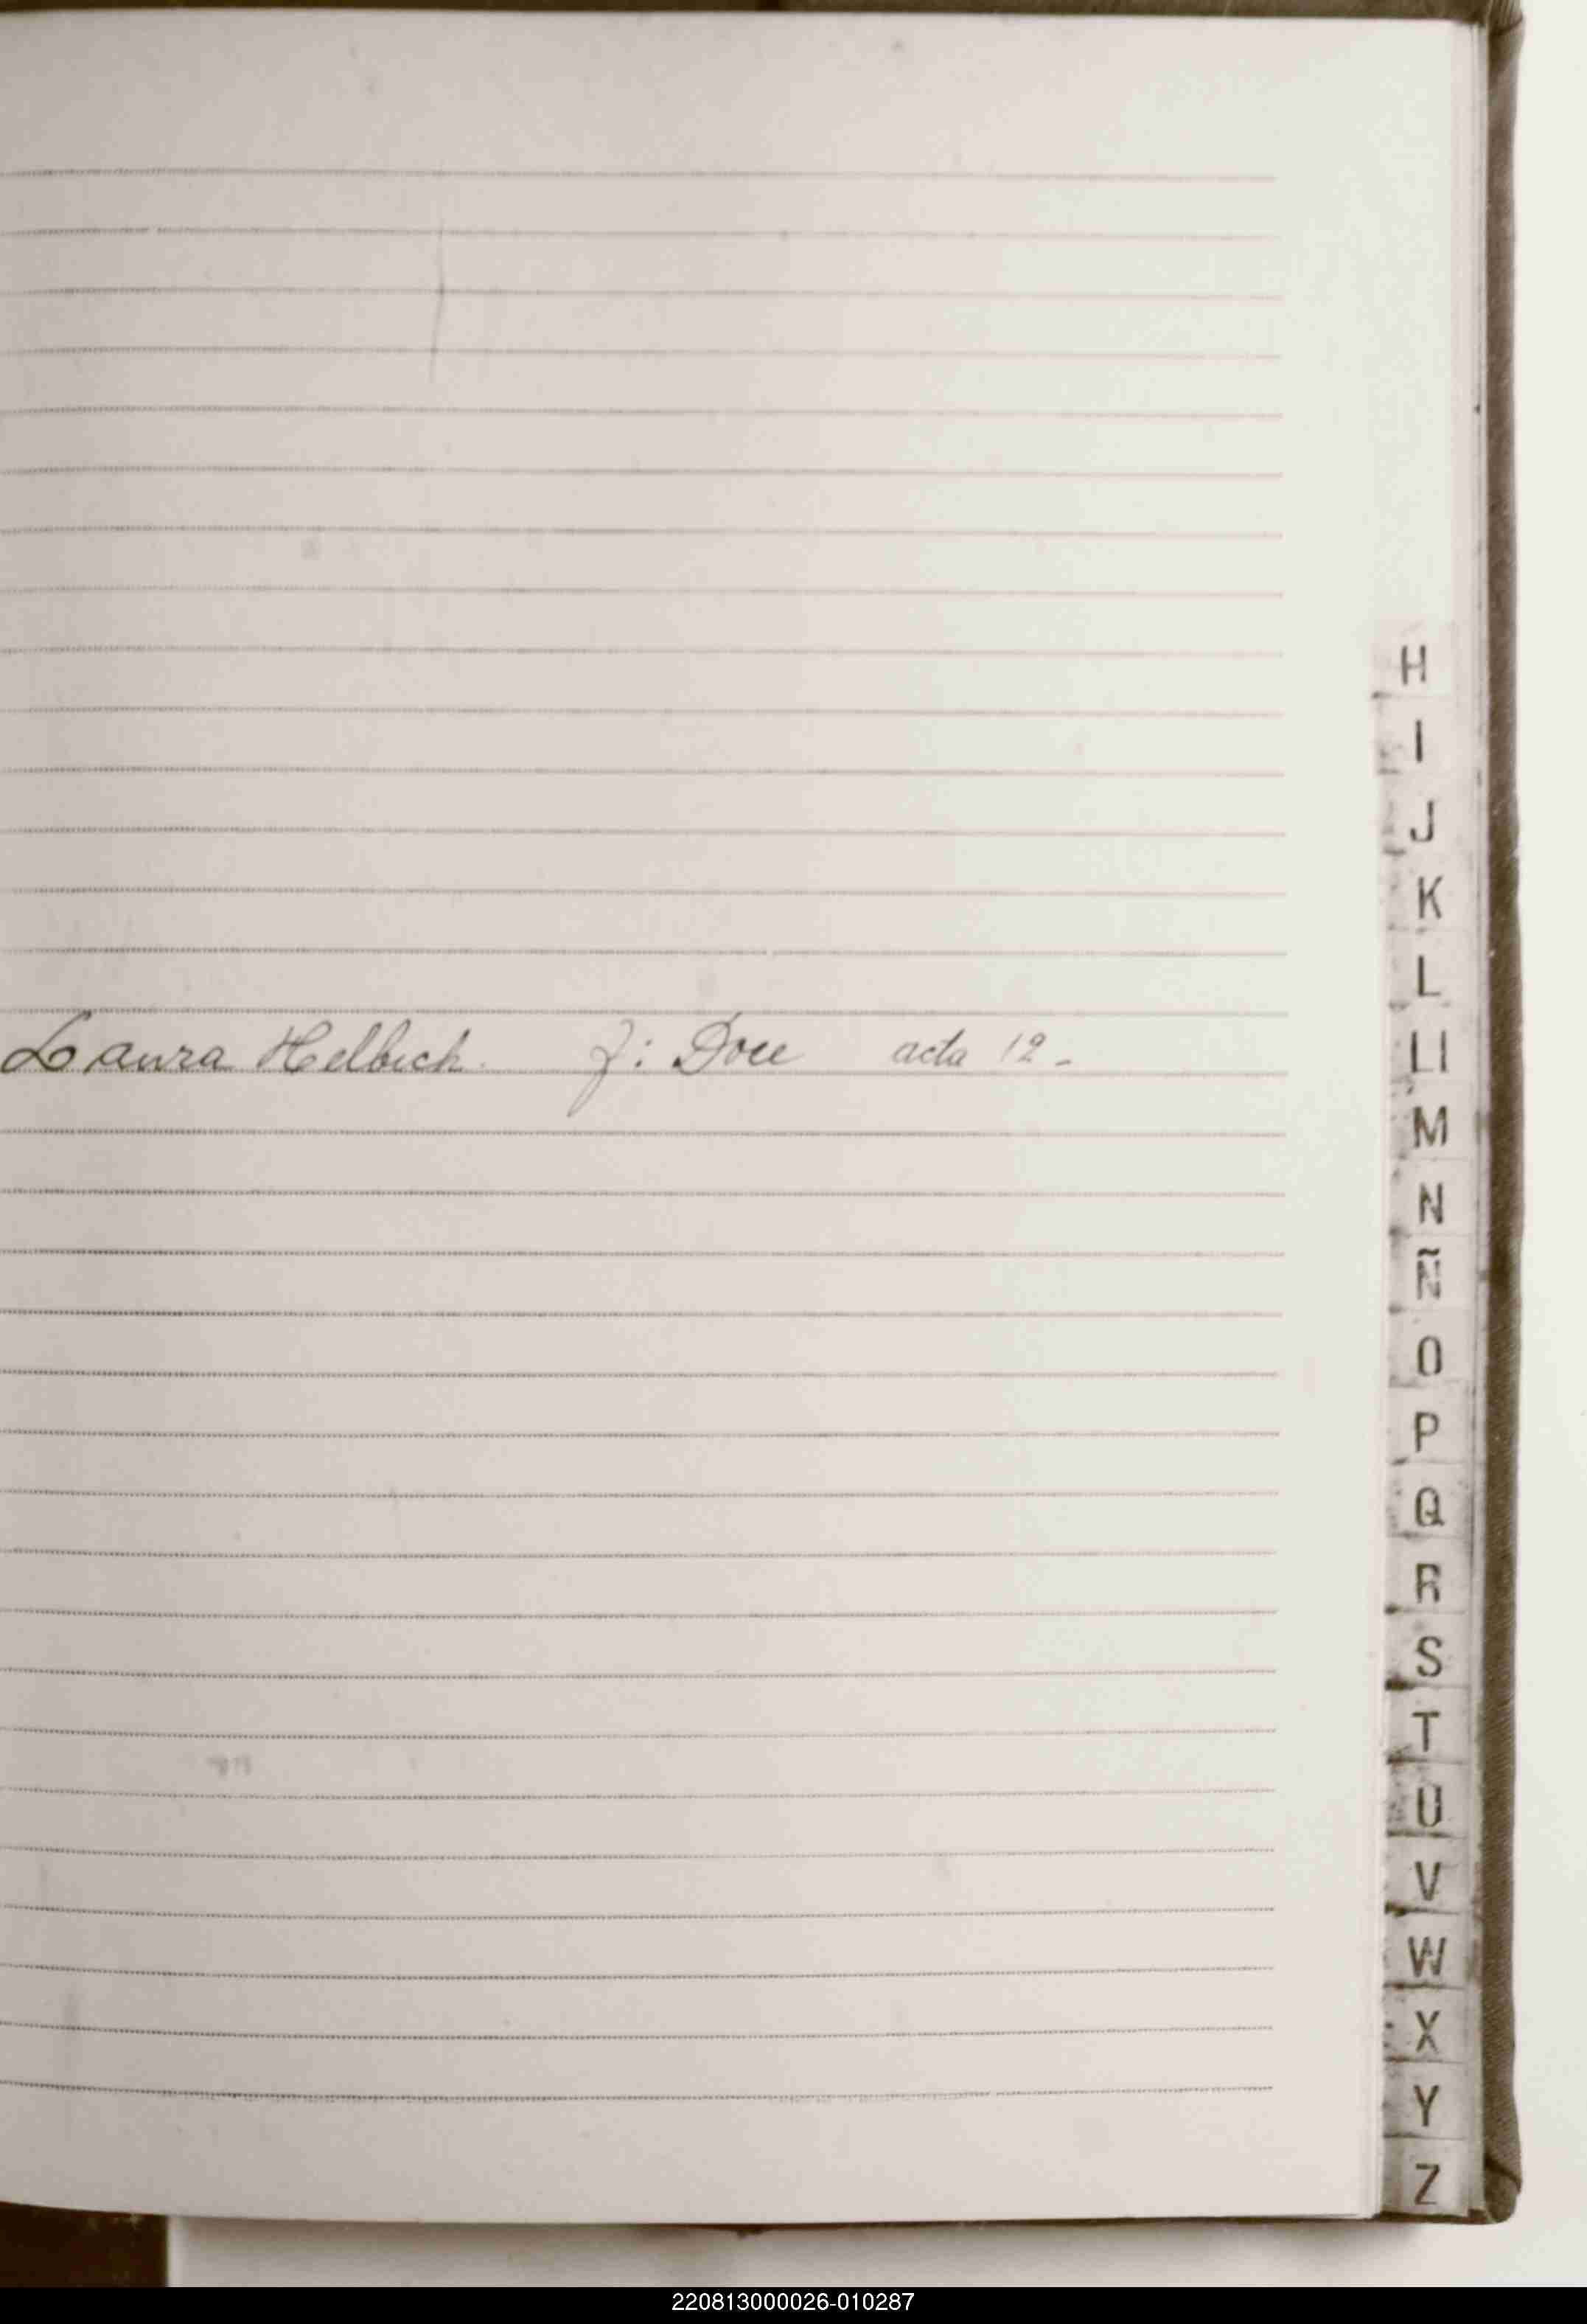 Laura Helbich. f: Doce acta 12-
H
I
J
K
L
Ll
M
N
Ñ
O
P
Q
R
S
T
U
V
W
X
Y
Z
220813000026-010287